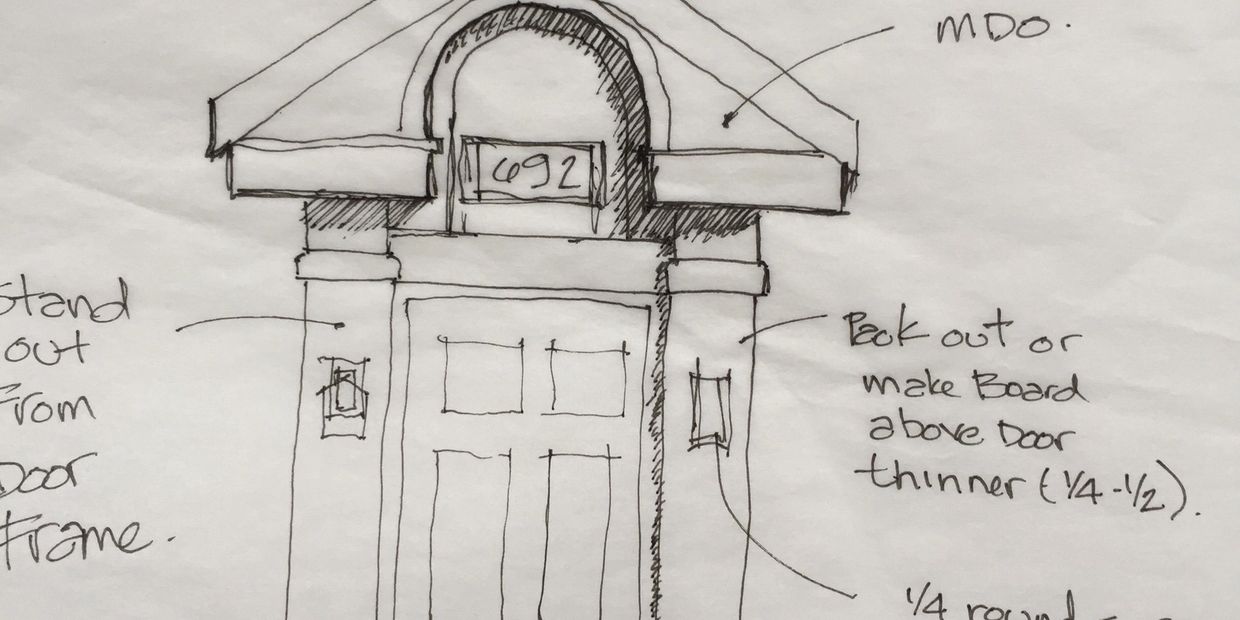 MDO.
692
Stand
out
From
Door
Frame.
Pack out or
make Board
above Door
thinner (1/4-1/2).
1/4 round